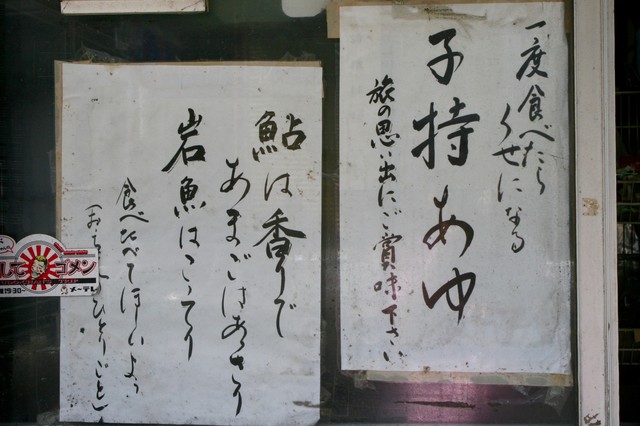 一度食べたら
くせになる
子持あゆ
旅の思い出にご賞味下さい
鮎は香りで
あまごはあっさり
岩魚はこってり
食べ比べてほしいよう
ひとりごと）
ゴメン
19:30~
メ~テレ